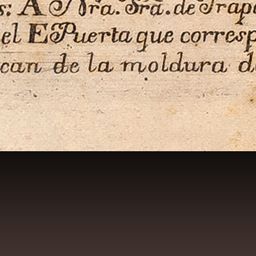 s: A Nra. Sra. de Trapa
el E Puerta que corresp
can de la moldura d